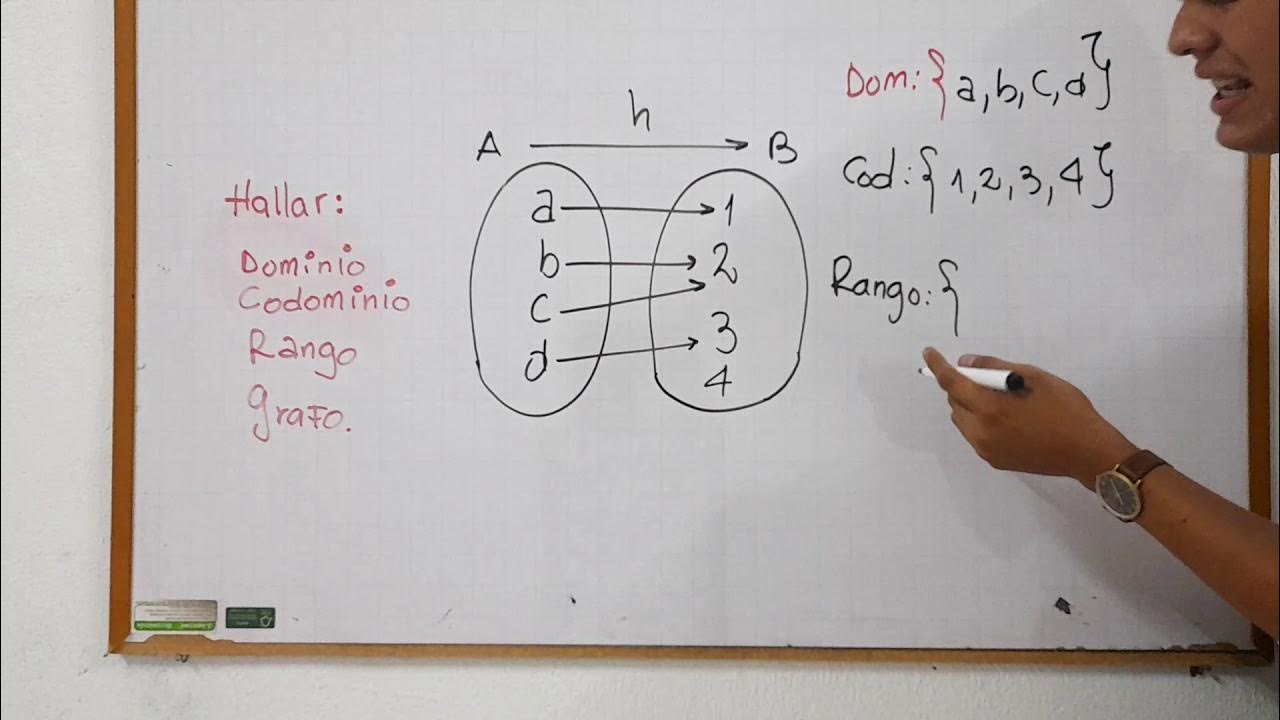 Hallar:
Dominio
Codominio
Rango
grafo.
h
A B
a 1
b 2
c
d 3
4
Dom: {a, b, c, d}
Cod: {1, 2, 3, 4}
Rango: {